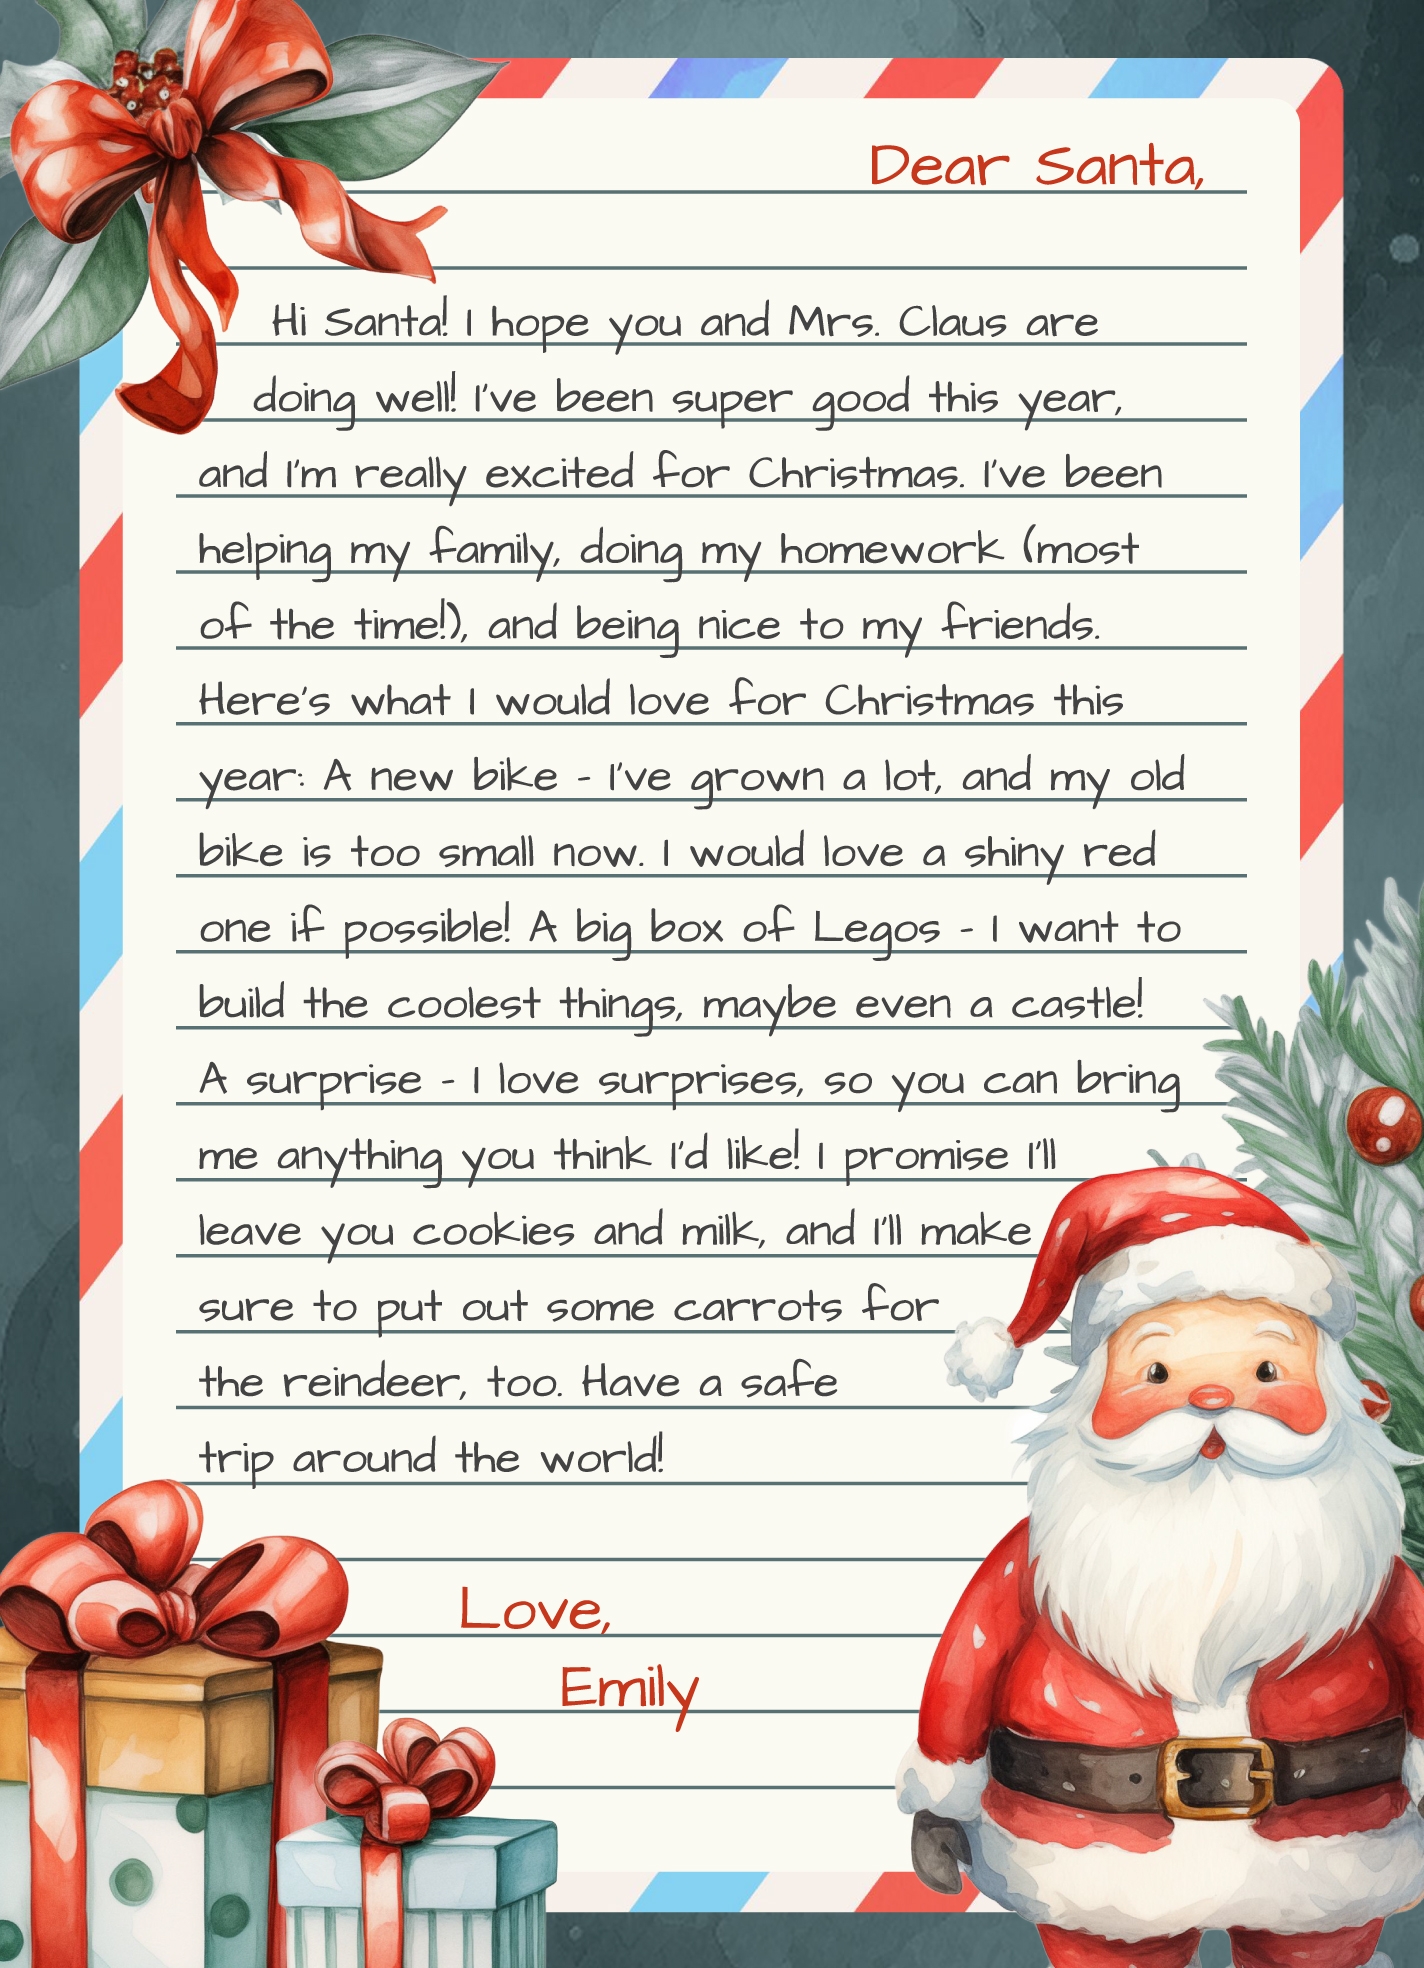 Dear Santa,
Hi Santa! I hope you and Mrs. Claus are
doing well! I've been super good this year,
and I'm really excited for Christmas. I've been
helping my family, doing my homework (most
of the time!), and being nice to my friends.
Here's what I would love for Christmas this
year: A new bike - I've grown a lot, and my old
bike is too small now. I would love a shiny red
one if possible! A big box of Legos - I want to
build the coolest things, maybe even a castle!
A surprise - I love surprises, so you can bring
me anything you think I'd like! I promise I'll
leave you cookies and milk, and I'll make
sure to put out some carrots for
the reindeer, too. Have a safe
trip around the world!
Love,
Emily